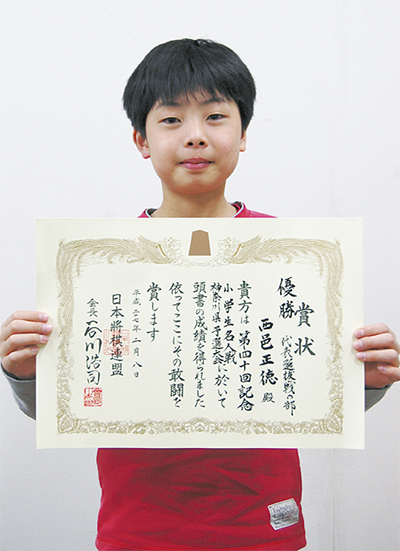 賞状
優勝
代表選抜戦の部
西邑正徳殿
貴方は第四十回記念
小学生名人戦
神奈川県予選大会に於いて
頭書の成績を得られました
依ってここにその敢闘を
賞します
平成二十七年二月八日
日本将棋連盟
会長谷川浩司